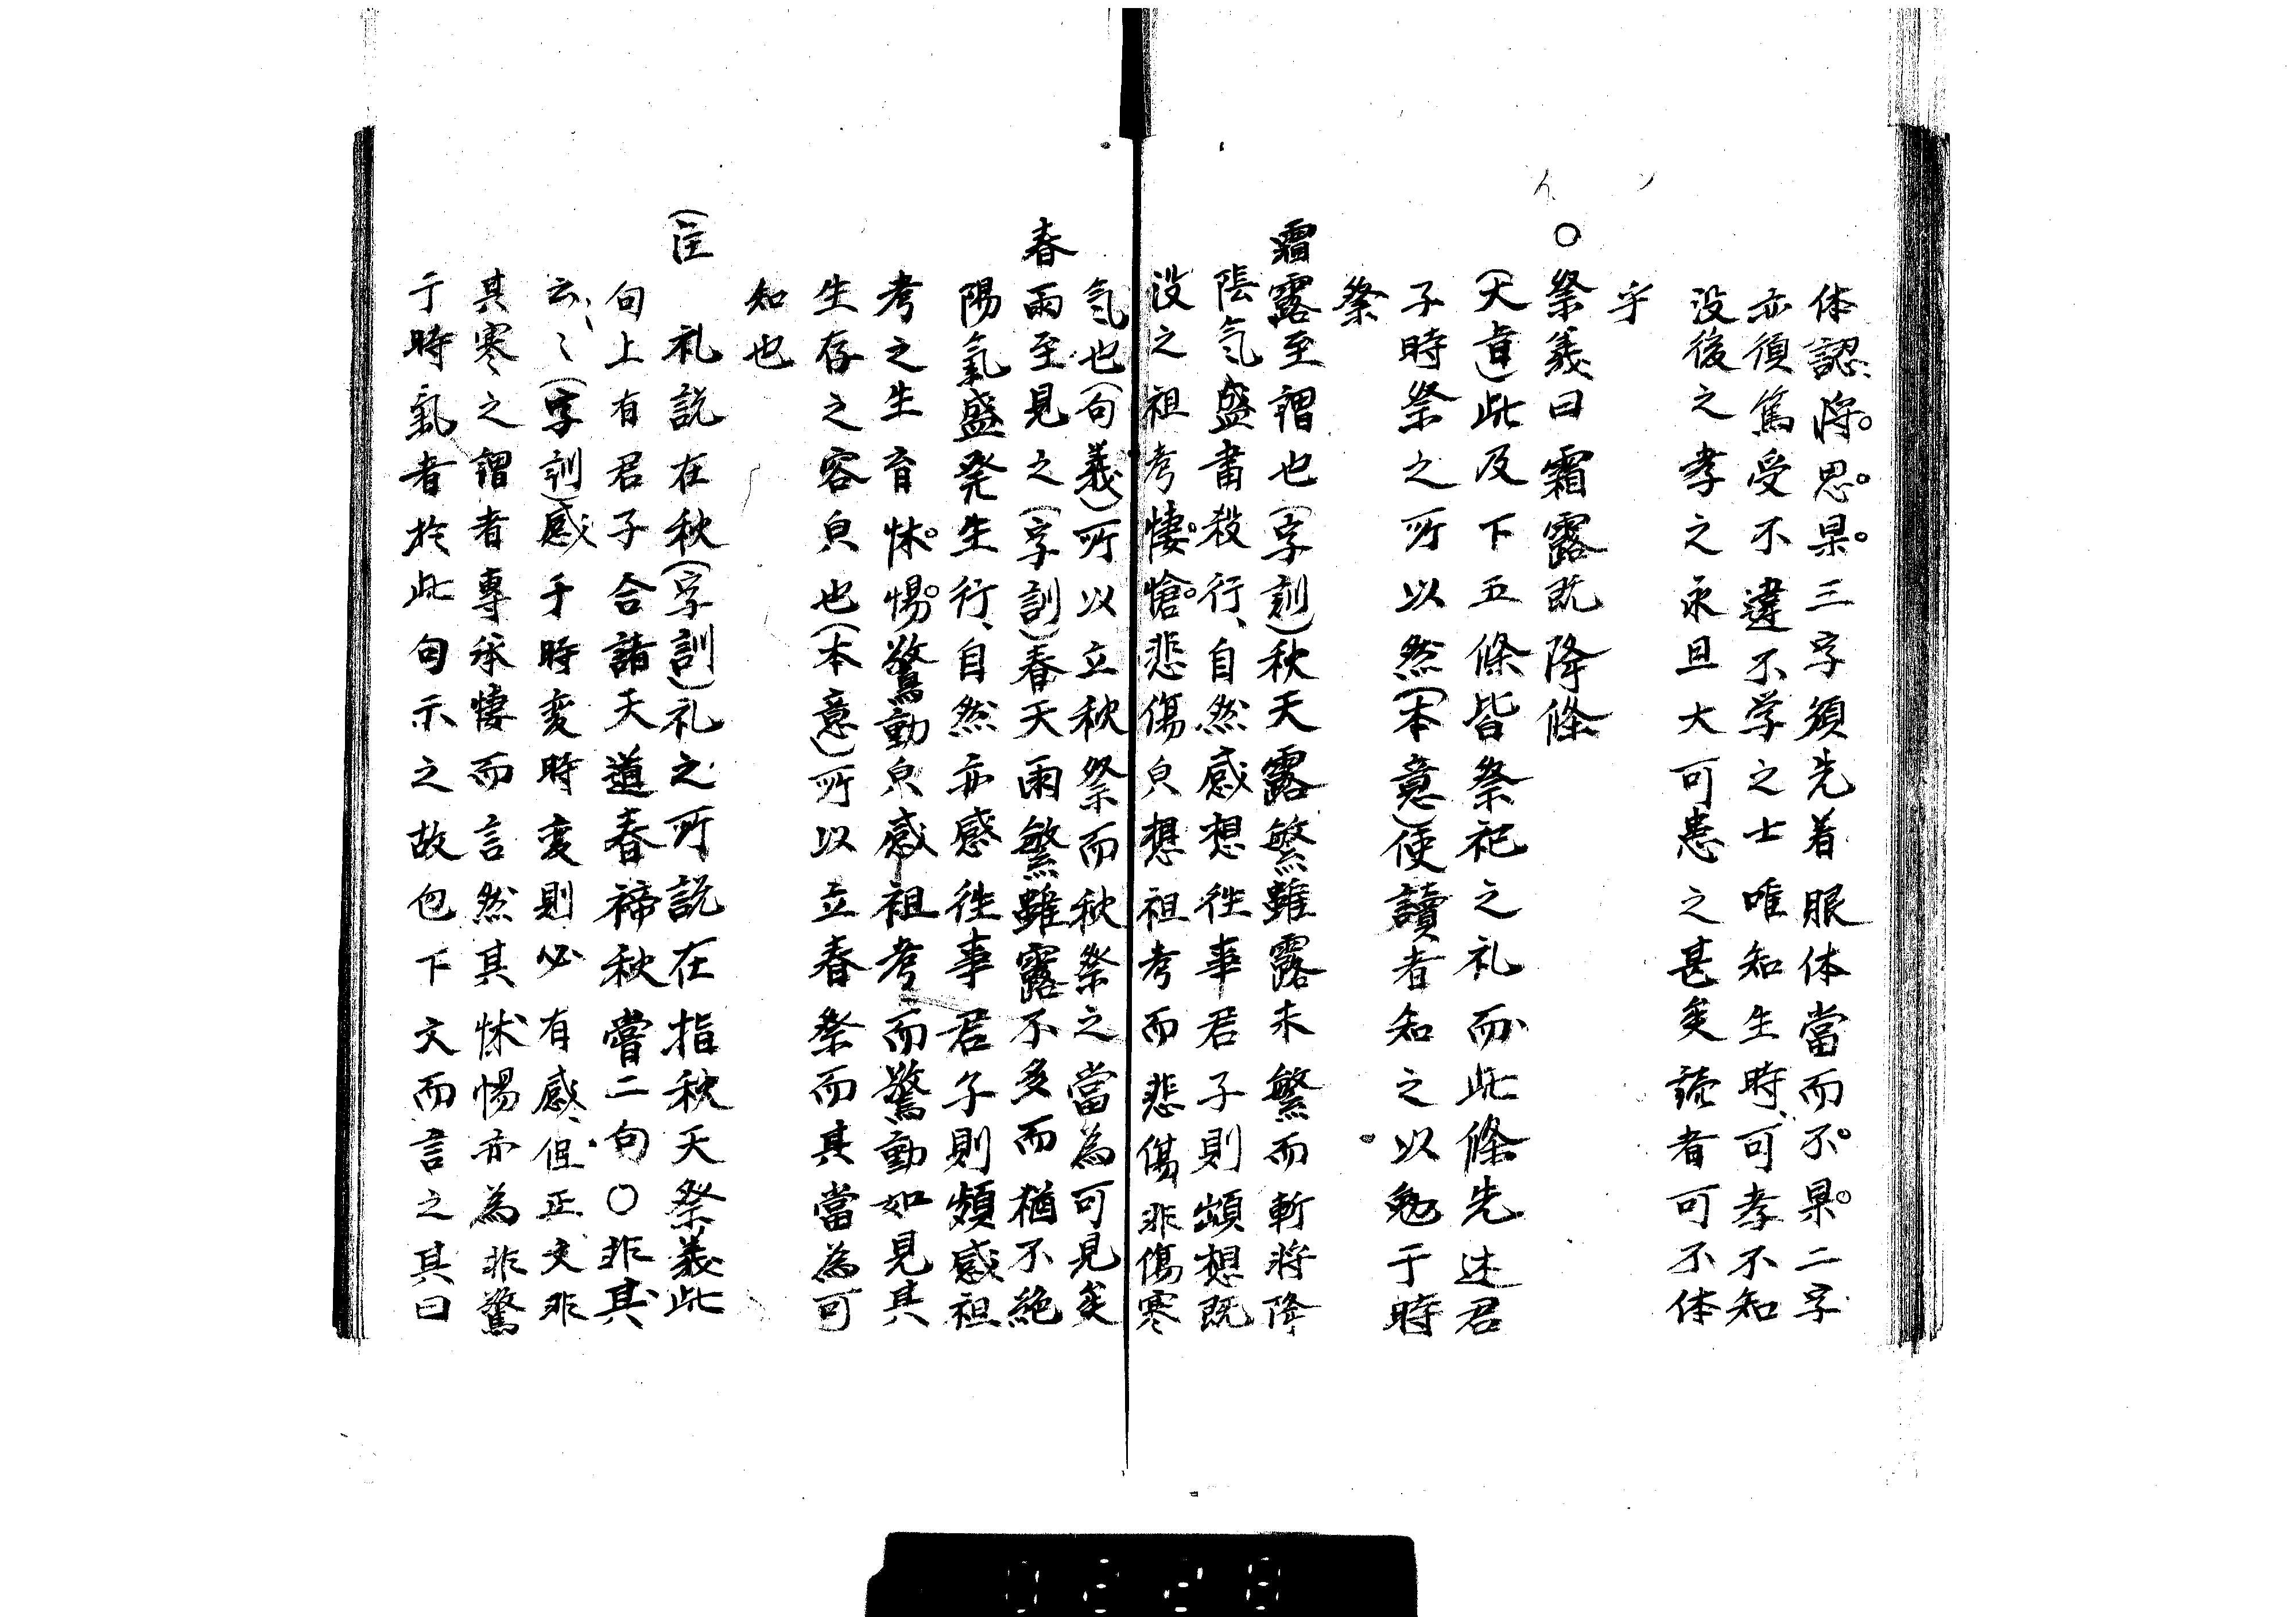 体認将思果三字須先着眼体當而不果二字
亦須篤受不違不学之士唯知生時可孝不知
没後之孝之永且大可患之甚矣読者可不体
乎
○祭義曰霜露既降條
(大旨)此及下五條皆祭祀之礼而此條先述君
子時祭之所以然(本意)使讀者知之以勉于時
祭
霜露至謂也(字訓)秋天露繁雖露未繁而漸将降
陰气盛粛殺行、自然感想徃事君子則頻想既
没之祖考悽愴悲傷皃想祖考而悲傷非傷寒
气也(句義)所以立秋祭而秋祭之當為可見矣
春雨至見之(字訓)春天雨繁雖露不多而猶不絶
陽氣盛発生行、自然亦感徃事君子則頻感祖
考之生育怵惕驚動皃感祖考而驚動如見其
生存之容皃也(本意)所以立春祭而其當為可
知也
(註 礼説在秋(字訓)礼之所説在指秋天祭義此
句上有君子合諸天道春禘秋嘗二句○非其
云々(字訓)感于時変時変則必有感但正文非
其寒之謂者專承悽而言然其怵惕亦為非驚
于時氣者於此句示之故包下文而言之其曰